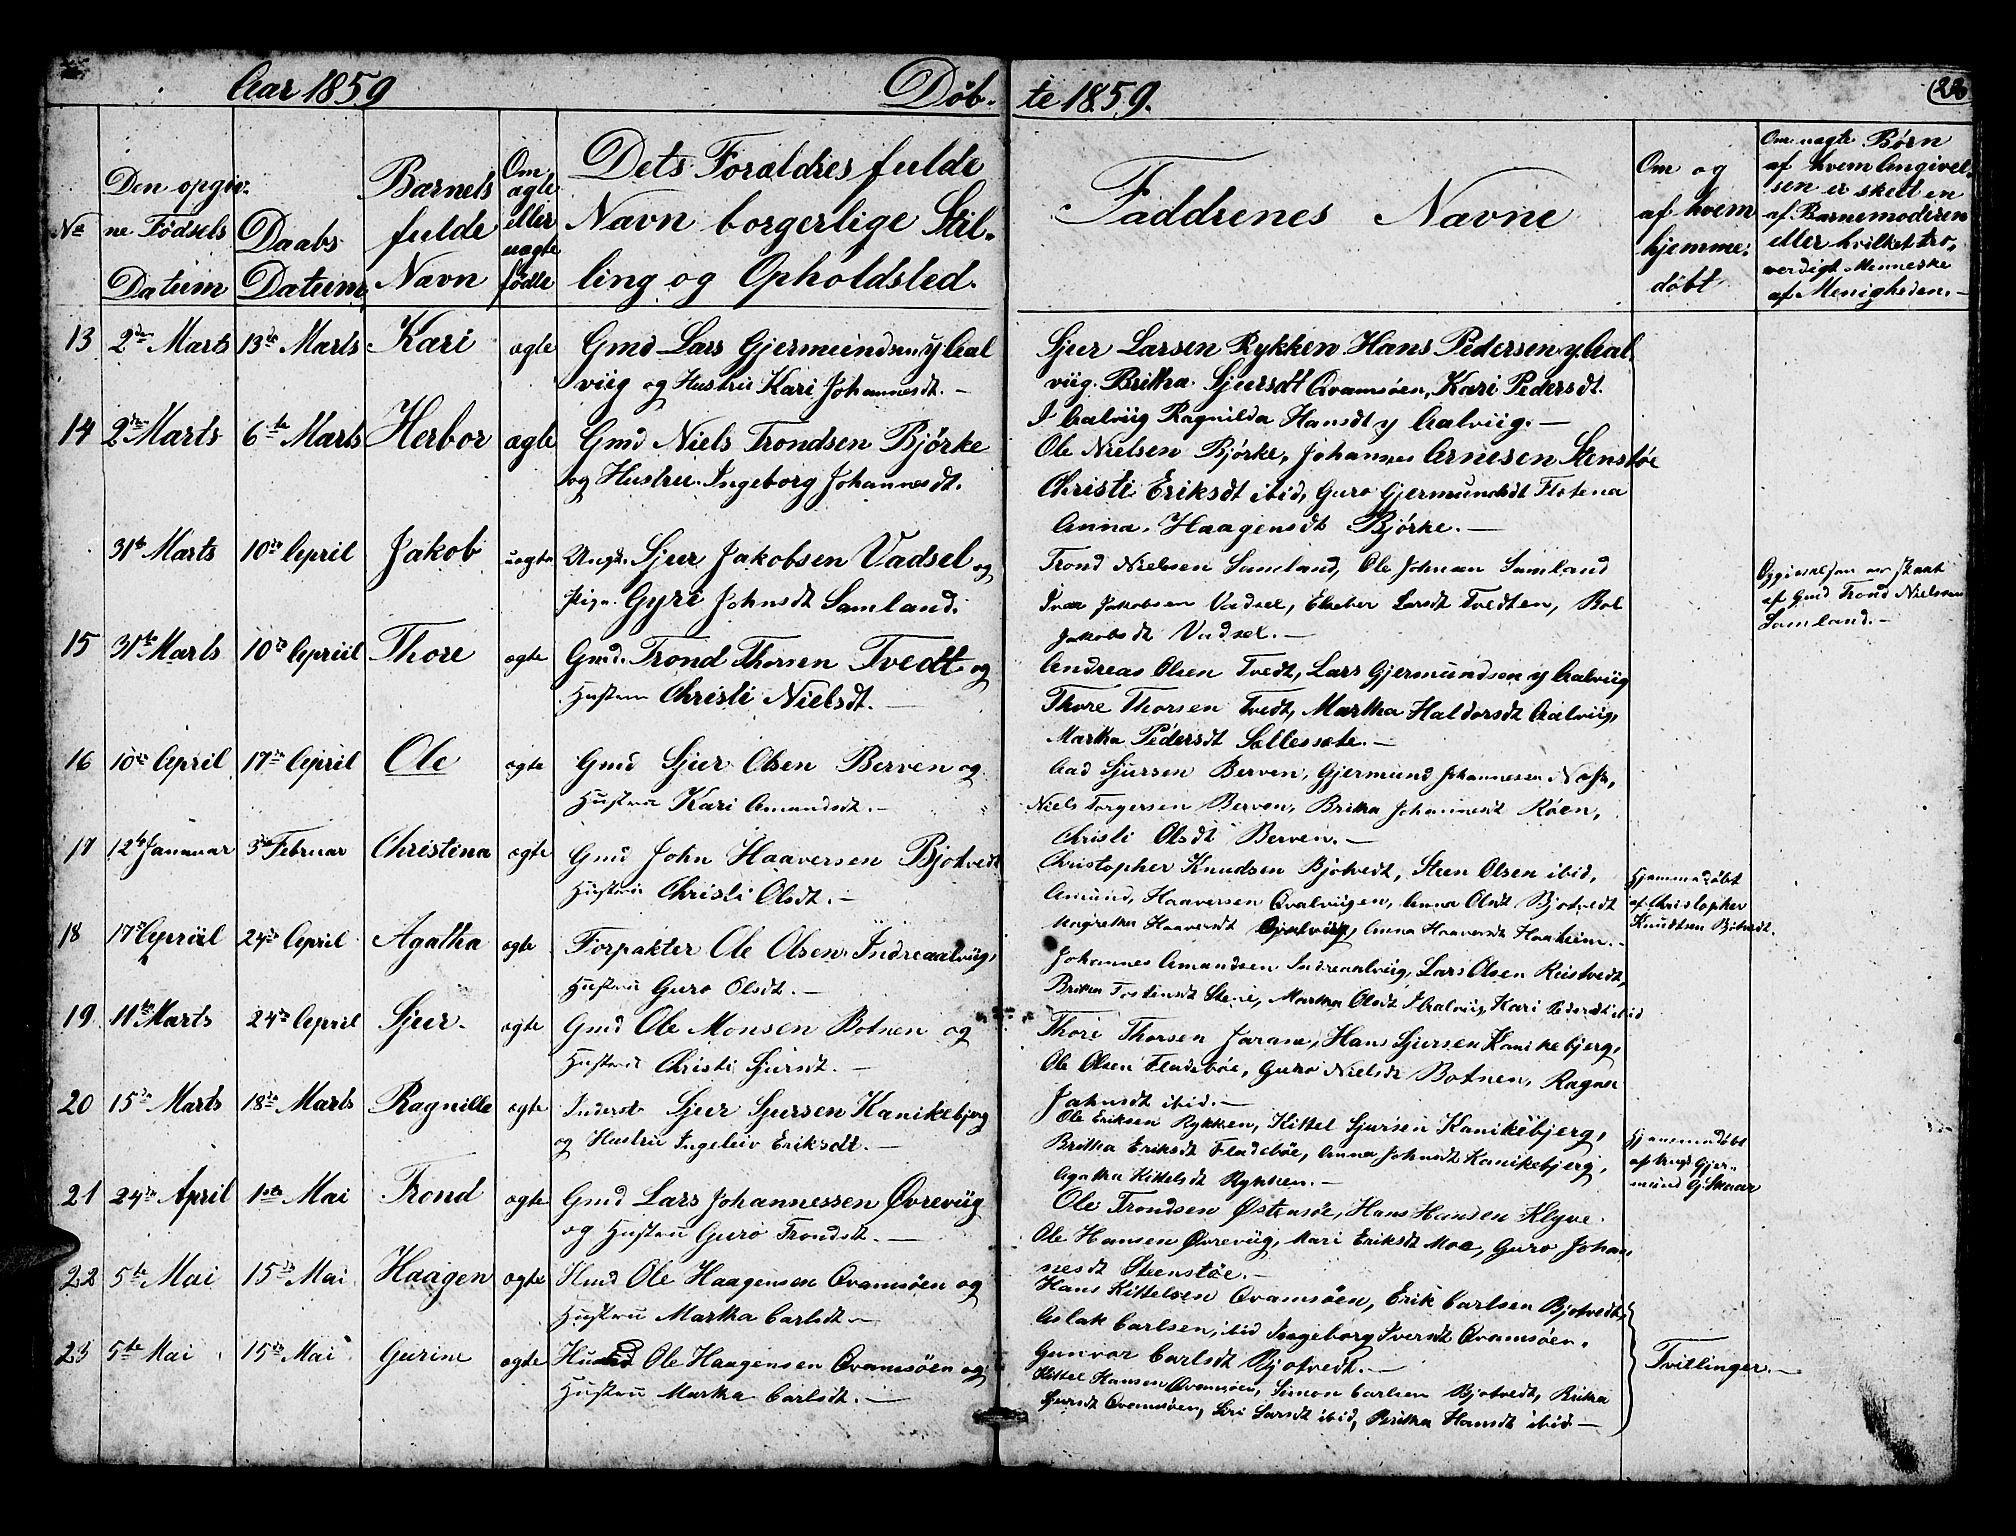 Aar 1859
Døb-
te 1859.
22
No
Den opgiv-
ne Fødsels
Datum
Daabs
Datum
Barnets
fulde
Navn
Om
ægte
eller
uægte
fødte
Dets Forældres fulde
Navn borgerlige Stil-
ling og Opholdsted.
Faddrenes Navne
Om og
af hvem
hjemme-
døbt
Om uægte Børn
af hvem Angivel-
sen er skeet en
af Barnemoderen
eller hvilket tro-
værdigt Menneske
af Menigheden.-
13 2den Marts 13de Marts Kari ægte Gmd Lars Gjermundsen y Aal
viig og Hustru Kari Johannesdt.-
Sjur Larsen Rykken Hans Pedersen y. Aal
viig. Britha Sjursdt Qvamsøen, Kari Pedersdt.
I Aalviig Ragnilda Hansdt y Aalviig.-
14 2den Marts 6te Marts Herbor ægte Gmd Niels Trondsen Bjørke
og Hustru Ingeborg Johannesdt.
Ole Nielsen Bjørke, Johannes Arnesen Stenstøe
Christi Eriksdt ibid, Guro Gjermundsdt Flotena
Anna Haagensdt Bjørke.-
31te Marts 10de April Jakob uægte Ungk. Sjur Jakobsen Vadsel og
Pige Gyri Johnsdt Samland.
Trond Nielsen Samland, Ole Johnsen Samland
Iver Jakobsen Vadsel, Elseber Larsdt Tvedten, Bol
Jakobsdt Vadsel.-
Opgivelsen er skeet
af Gmd Trond Nielsen
Samland.-
15 31te Marts 10de Apriil Thore ægte Gmd. Trond Thorsen Tvedt og
Hustru Christi Nielsdt.-
Andreas Olsen Tvedt, Lars Gjermundsen y Aalviig
Thore Thorsen Tvedt, Martha Haldorsdt Aalviig,
Martha Pedersdt Sællesæte.-
16 10de April 17de April Ole ægte Gmd Sjur Olsen Berven og
Hustru Kari Amundsdt.-
Aad Sjursen Berven, Gjermund Johannessen
Niels Torgersen Berven, Britha Johannesdt Røen,
Christi Olsdt Berven.-
17 12te Januar Februar Christina ægte Gmd John Haaversen Bjotvedt
Hustru Christi Olsdt.-
Christopher Knudsen Bjotvedt, Steen Olsen ibid,
Amund Haaversen Qvalviigen, Anna Olsdt Bjotvedt
Margretha Haaversdt Anna Haaversdt Haaheim.-
Hjemmedøbt
af Christopher
Knudtsen Bjotvedt.
18 17de Apriil 24de April Agatha ægte Forpakter Ole Olsen Indreaalviig,
Hustru Guro Olsdt.-
Johannes Amundsen Indreaalviig, Lars Olsen Reistvedt,
Britha Tostensdt Steine, Martha Olsdt I Aalviig, Kari Pedersdt ibid
19 11te Marts 24de April Sjur ægte Gmd Ole Monsen Botnen og
Hustru Christi Sjursdt.-
Thore Thorsen Jarane, Hans Sjursen Kanikebjerg,
Ole Olsen Fladebøe, Guro Nielsdt Botnen, Ragna
Johnsdt ibid.-
20 15de Marts 18de Marts Ragnilla ægte Inderst Sjur Sjursen Kanikebjerg
og Hustru Ingeleiv Eriksdt.-
Ole Eriksen Rykken, Kittel Sjursen Kanikebjerg,
Britha Eriksdt Fladebøe, Anna Johnsdt Kanikebjerg,
Agatha Kittelsdt Rykken.-
Hjemmedøbt
af Ungk Gjer-
mund G. Skaar
21 24de April 1ste Mai Trond ægte Gmd Lars Johannessen Øvreviig
og Hustru Guro Trondsdt.-
Ole Trondsen Østensøe, Hans Hansen Klyve.
Ole Hansen Øvreviig, Mari Eriksdt Moe, Guro Johan
nesdt Steenstøe.-
22 5te Mai 15de Mai Haagen ægte Hmd Ole Haagensen Qvamsøen og
Hustru Martha Carlsdt.-
Hans Kittelsen Qvamsøen, Erik Carlsen Bjotvedt,
Aslak Carlsen, ibid Ingeborg Iversdt Qvamsøen.
Gunvor Carlsdt Bjotvedt.-
23 5te Mai 15de Mai Gurine ægte Ole Haagensen Qvamsøen og
Hustru Martha Carlsdt.-
Kittel Hansen Qvamsøen, Simon Carlsen Bjotvedt, Britha
Sjursdt Qvamsøen, Siri Larsdt ibid, Britha Hansdt ibid-
Tvillinger.-